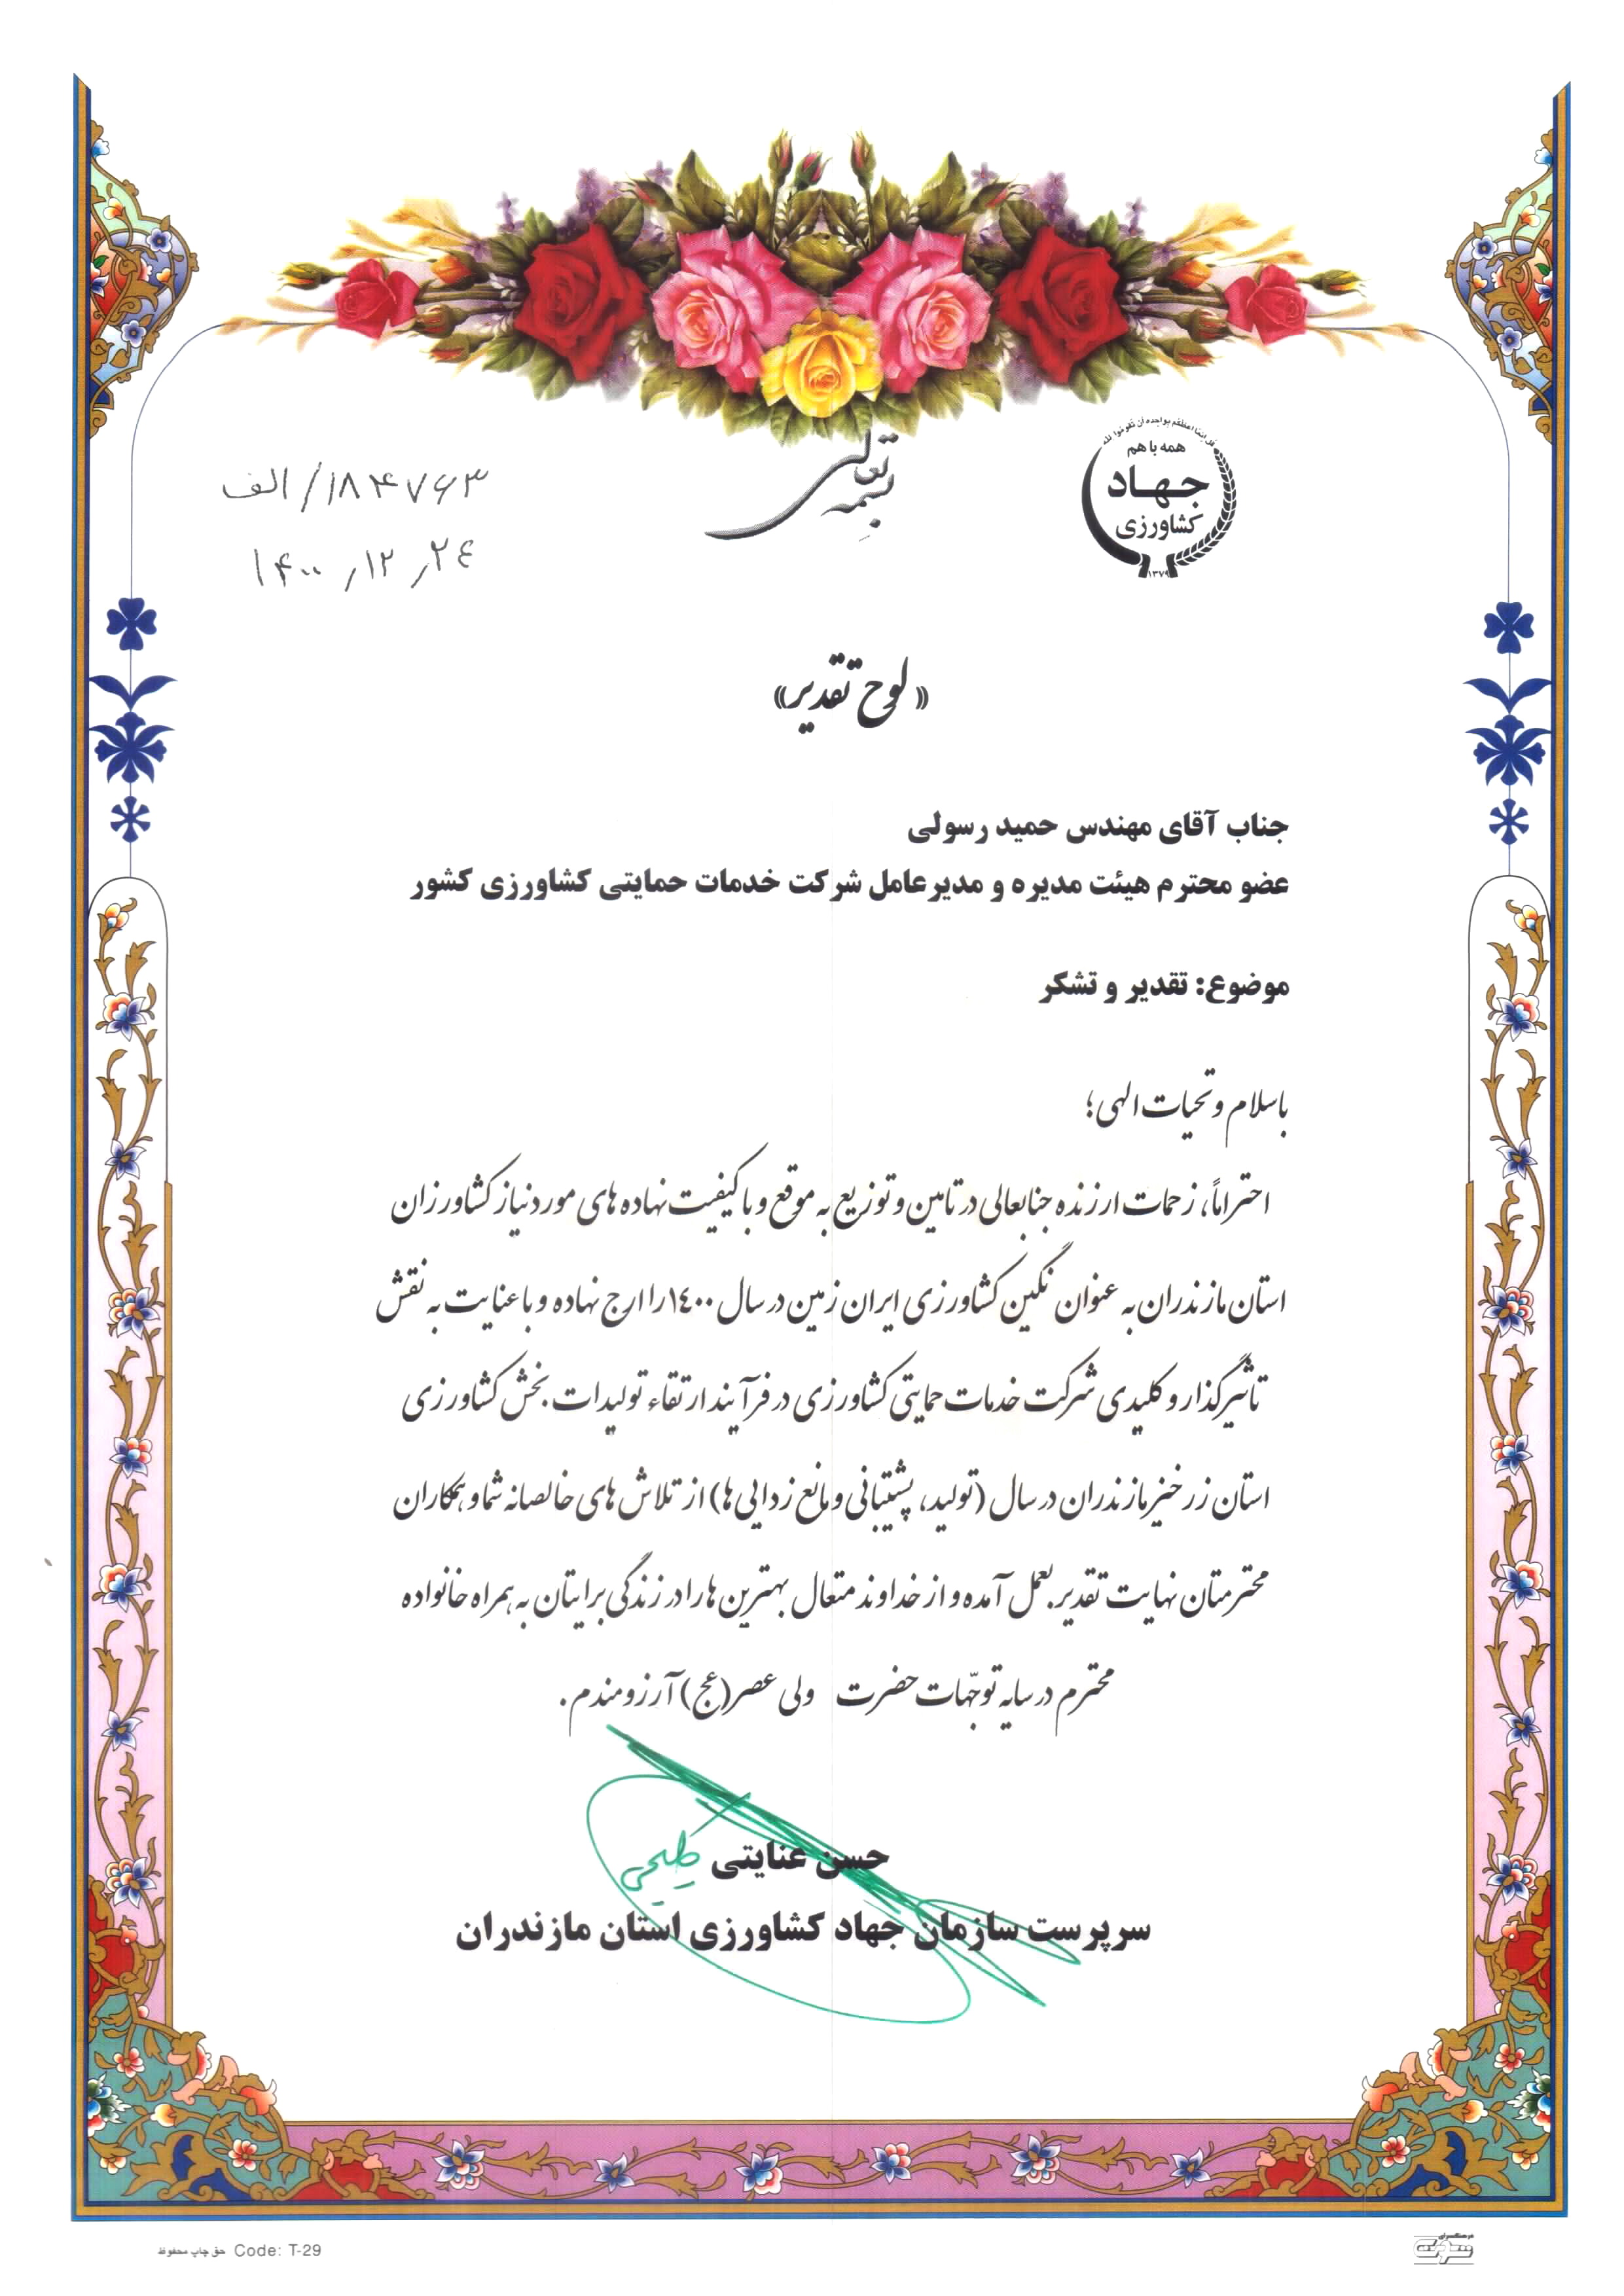 بسمه تعالی
قل انما اعظکم بواحده ان تقوموا لله
همه با هم
جهاد
کشاورزی
۱۳۷۹
۱۸۴۷۶۳/الف
۱۴۰۰,۱۲,۲۴
«لوح تقدیر»
جناب آقای مهندس حمید رسولی
عضو محترم هیئت مدیره و مدیرعامل شرکت خدمات حمایتی کشاورزی کشور
موضوع: تقدیر و تشکر
باسلام و تحیات الهی؛
احتراماً، زحمات ارزنده جنابعالی در تامین و توزیع به موقع و با کیفیت نهاده های مورد نیاز کشاورزان
استان مازندران به عنوان نگین کشاورزی ایران زمین در سال ۱٤۰۰ را ارج نهاده و با عنایت به نقش
تأثیرگذار و کلیدی شرکت خدمات حمایتی کشاورزی در فرآیند ارتقاء تولیدات بخش کشاورزی
استان زرخیز مازندران در سال (تولید، پشتیبانی و مانع زدایی ها) از تلاش های خالصانه شما و همکاران
محترمتان نهایت تقدیر بعمل آمده و از خداوند متعال بهترین ها را در زندگی برایتان به همراه خانواده
محترم در سایه توجّهات حضرت ولی عصر(عج) آرزومندم.
حسن عنایتی
سرپرست سازمان جهاد کشاورزی استان مازندران
حق چاپ محفوظ Code: T-29